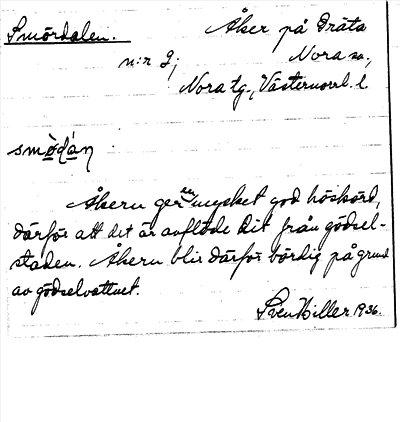 Smördalen. Åker på Gräta
n:r 2; Nora sn.,
Nora tg., Västernorrl. l
smö̀dáṇ
Åkern ger en mycket god höskörd,
därför att det är avflöde dit från gödsel-
staden. Åkern blir därför bördig på grund
av gödselvattnet.
Sven Hiller 1936.